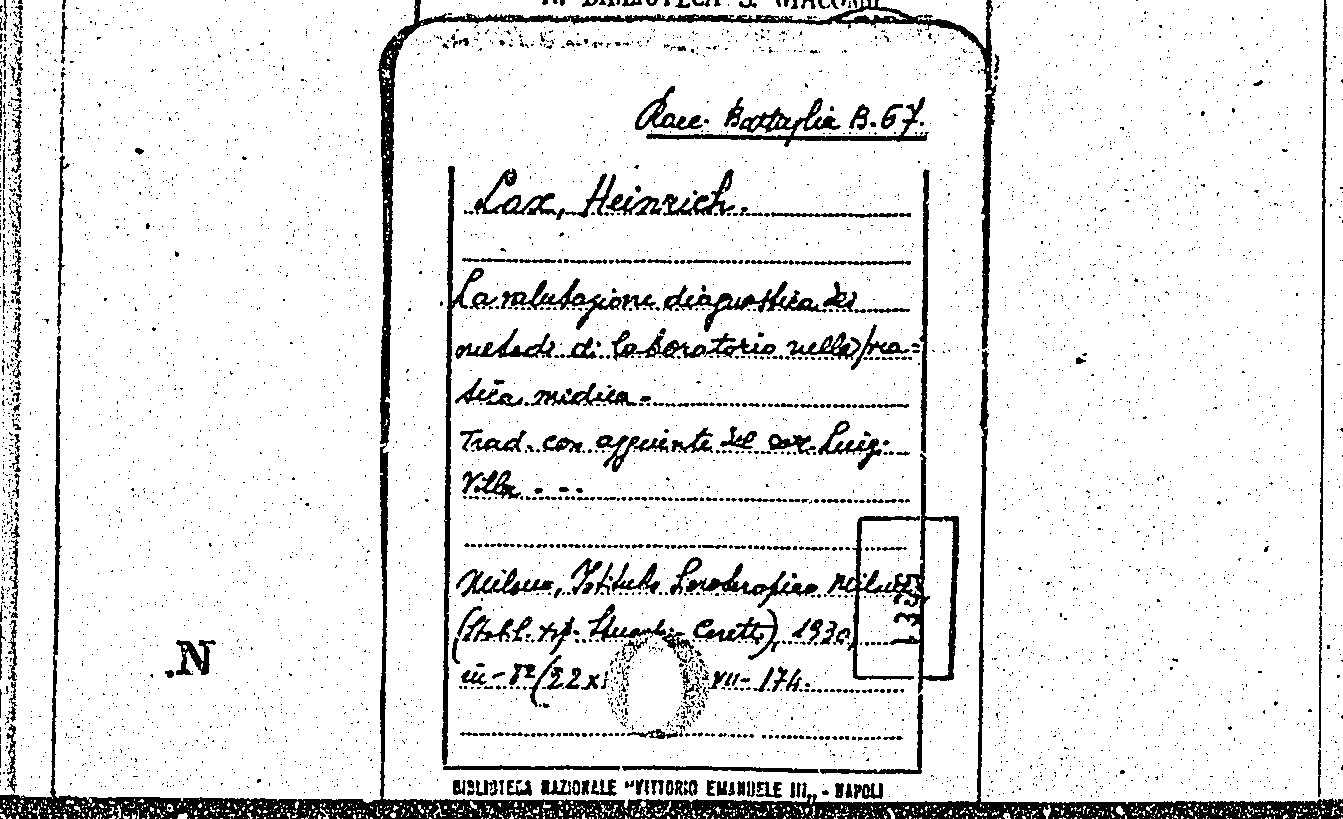 BIBLIOTECA S. GIACOMO
Racc. Battaglia B. 67.
Lax, Heinrich.
La valutazione diagnostica dei
metodi di laboratorio nella pra=
tica medica -
Trad. con aggiunte del Luigi
Villa . - -
Milano, Istituto Sieroterapico Milan
(Stabil. tip. Ceretti), 1930,
in-8º (22 x VII- 174.
1335
.N
BIBLIOTECA NAZIONALE "VITTORIO EMANUELE III„ - NAPOLI